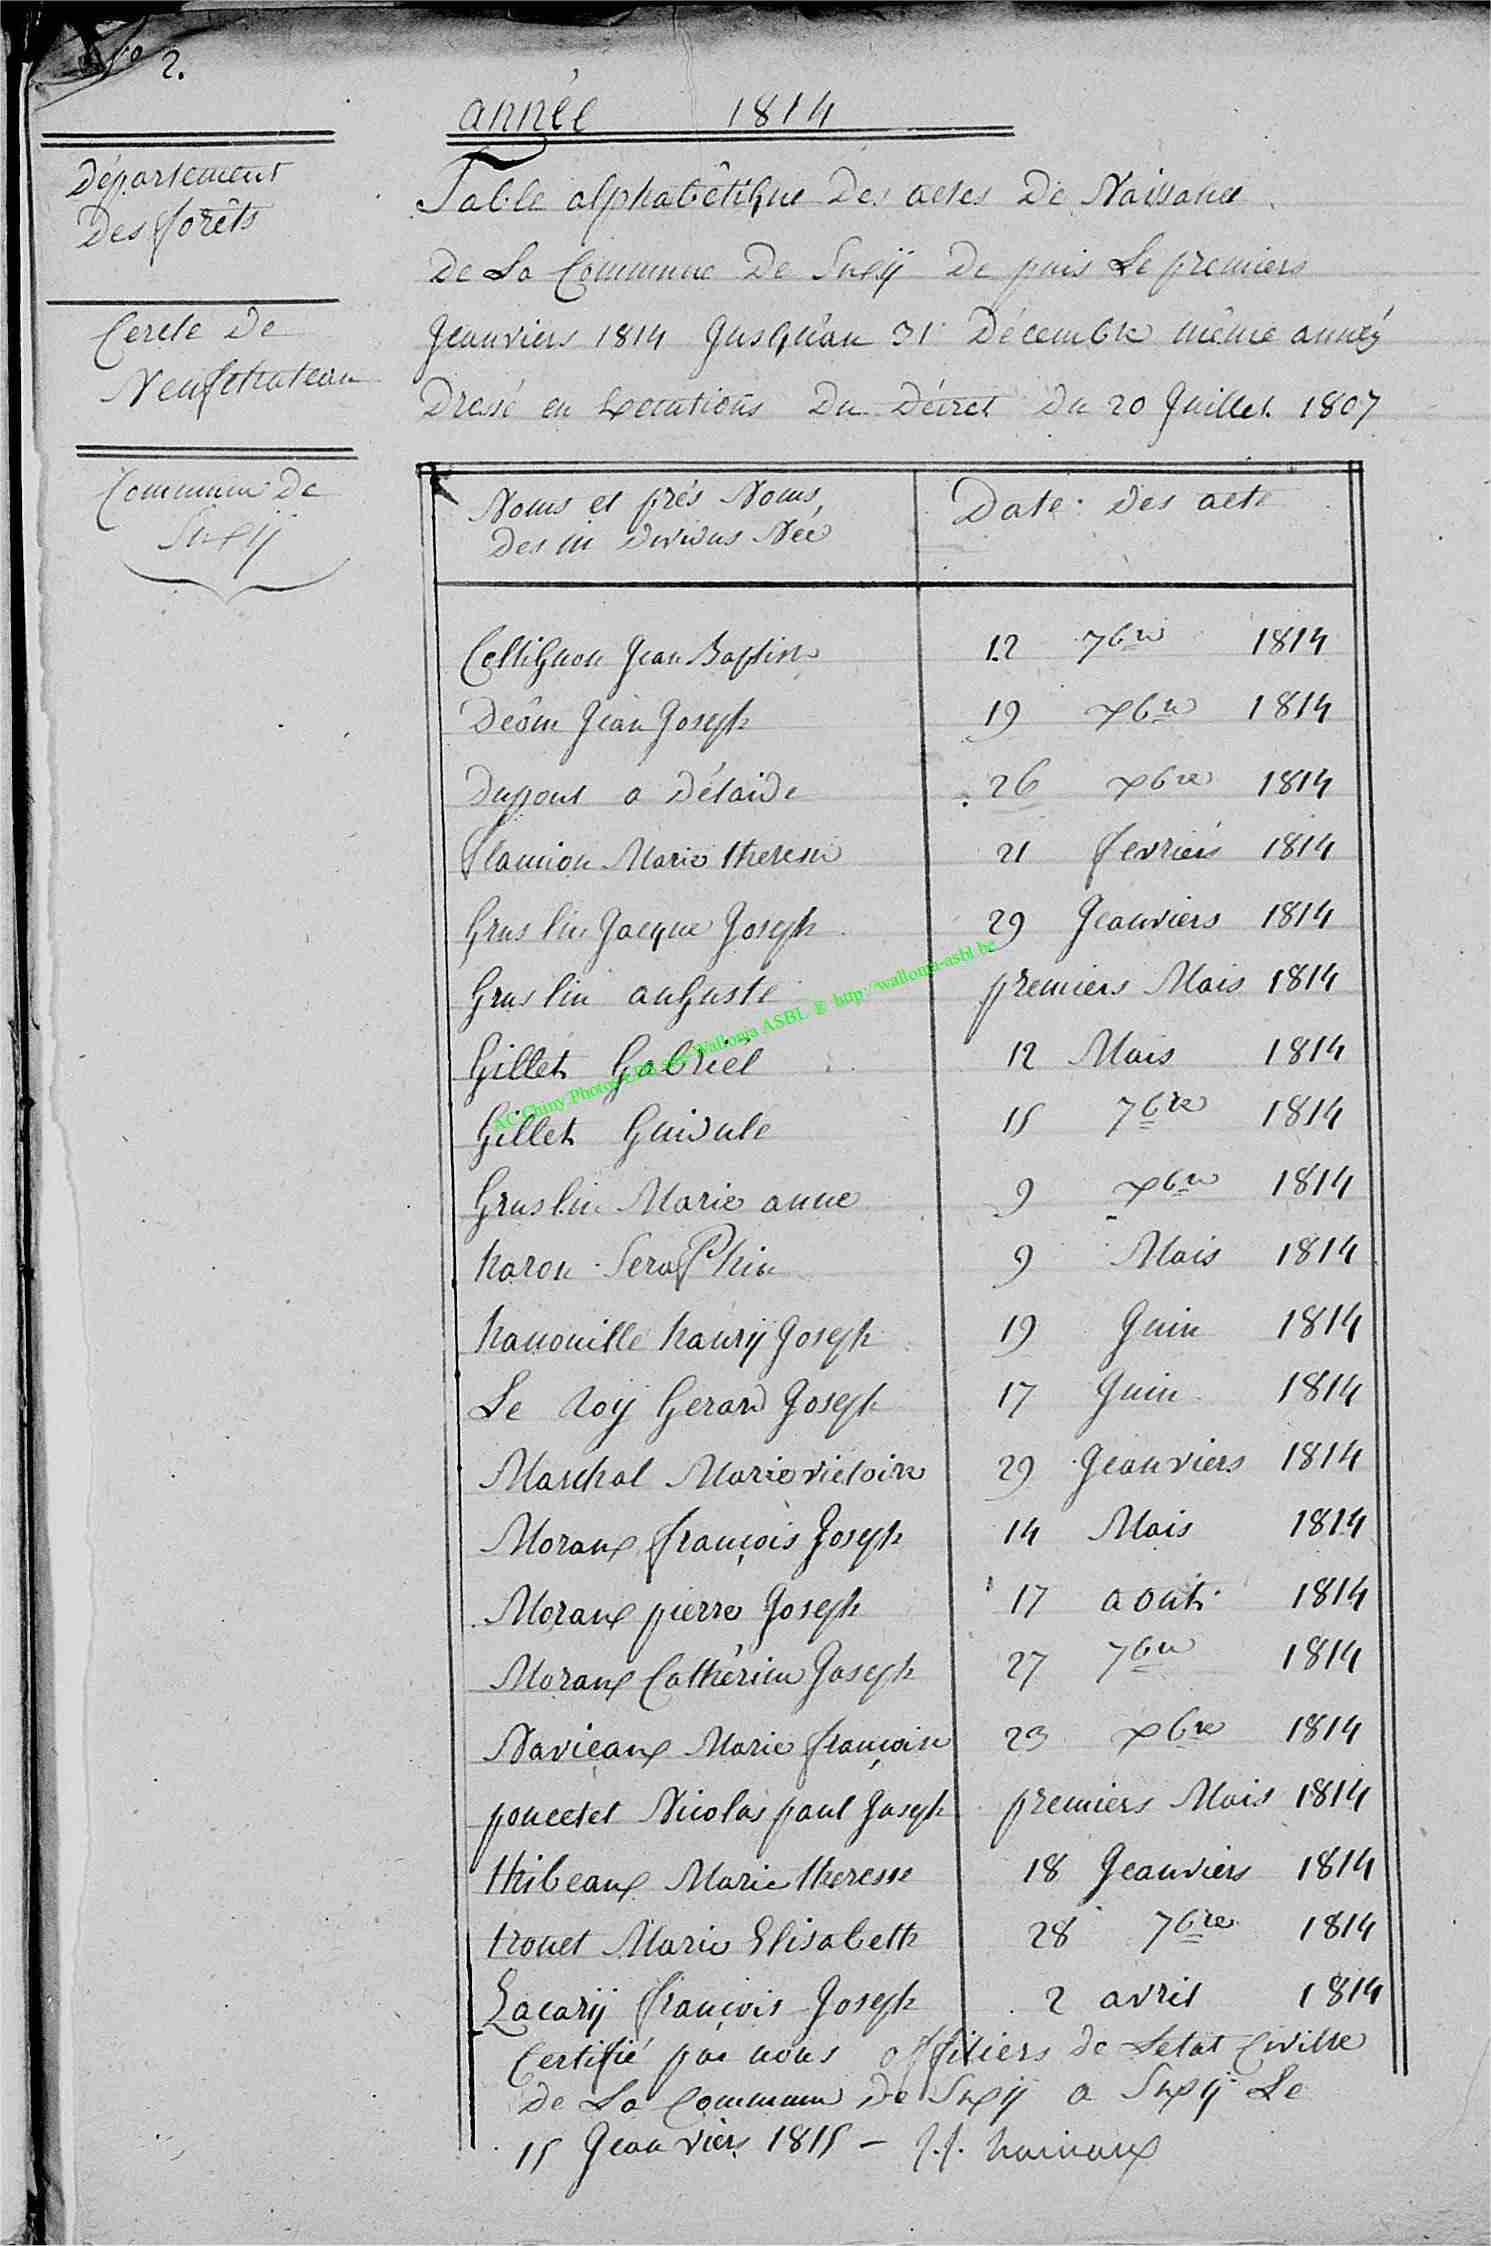 No 2.
année 1814
Département
Des forêts
Cercle De
Neufchateau
Commune De
Suxÿ
Table alphabêtique Des actes De Naissance
De La Commune De Suxÿ De puis Le premiers
Jeanviers 1814 Jusquàu 31 Décembre même anneé
Dressé en Execútions Du Décret Du 20 Juillet 1807
Noms et prés Noms, Date Des acte
Des in Dividus Née
Jean Baptiste 12 7bre 1814
Deôm Jean Joseph 19 xbre 1814
Dupont a Délaide 26 xbre 1814
flamion Marie therese 21 fevriers 1814
Gruslin Jacque Joseph 29 Jeanviers 1814
Gruslin auguste premiers Mars 1814
Gillet Gabriel 12 Mars 1814
Gillet Guidule 15 7bre 1814
Gruslin Marie anne 9 xbre 1814
haron Seraphin 9 Mars 1814
hanouille hanrÿ Joseph 19 Juin 1814
Le Roÿ Gerard Joseph 17 Juin 1814
Marchal Marie victoire 29 Jeanviers 1814
Moraux françois Joseph 14 Mars 1814
Moraux pierre Joseph 17 aout 1814
Moraux Cathérine Joseph 27 7bre 1814
Navieaux Marie françoise 23 xbre 1814
poncelet Nicolas paul Joseph premiers Mars 1814
thibeaux Marie theresse 18 Jeanviers 1814
trouet Marie Elisabeth 28 7bre 1814
Zacarÿ françois Joseph 2 avril 1814
Certifié par nous offitiers de Letat Civille
de La Commune De Suxÿ a Suxÿ Le
15 Jeanviers 1815 – J.J. hainaux
AC Chiny Photos par Wallonia ASBL http://wallonia-asbl.be